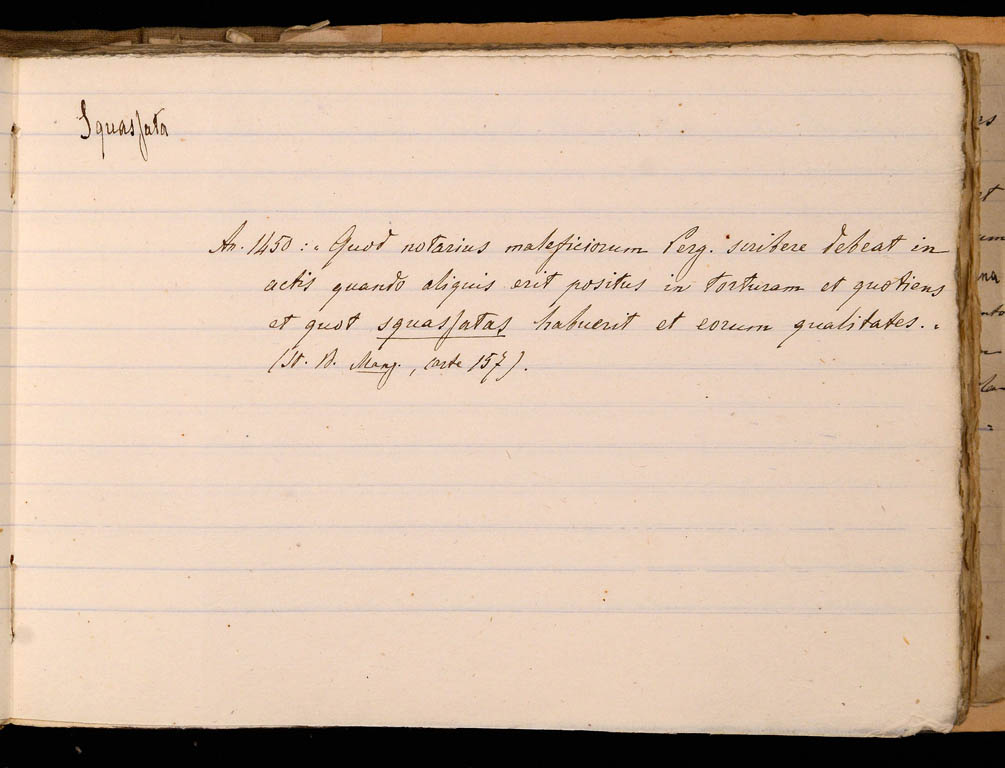 Squassata
An. 1450: " Quod notarius maleficiorum Perg. scribere debeat in
actis quando aliquis erit positus in torturam et quotiens
et quot squassatas habuerit et eorum qualitates. "
(St. B. Mang., carte 157).